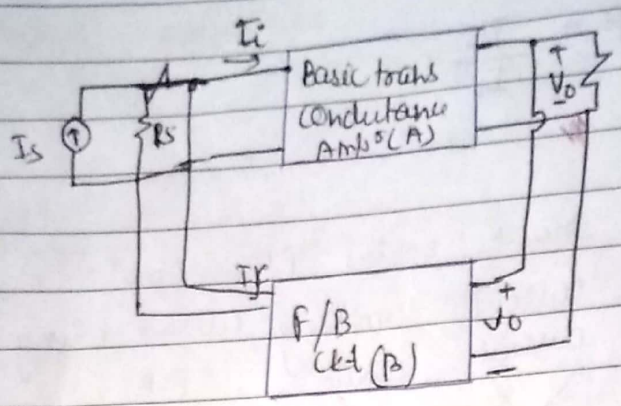 Ii
Basic trans
Condutance
Amp(A)
Vo
Is
Rs
If
F/B
Ckt (B)
+
Vo
-